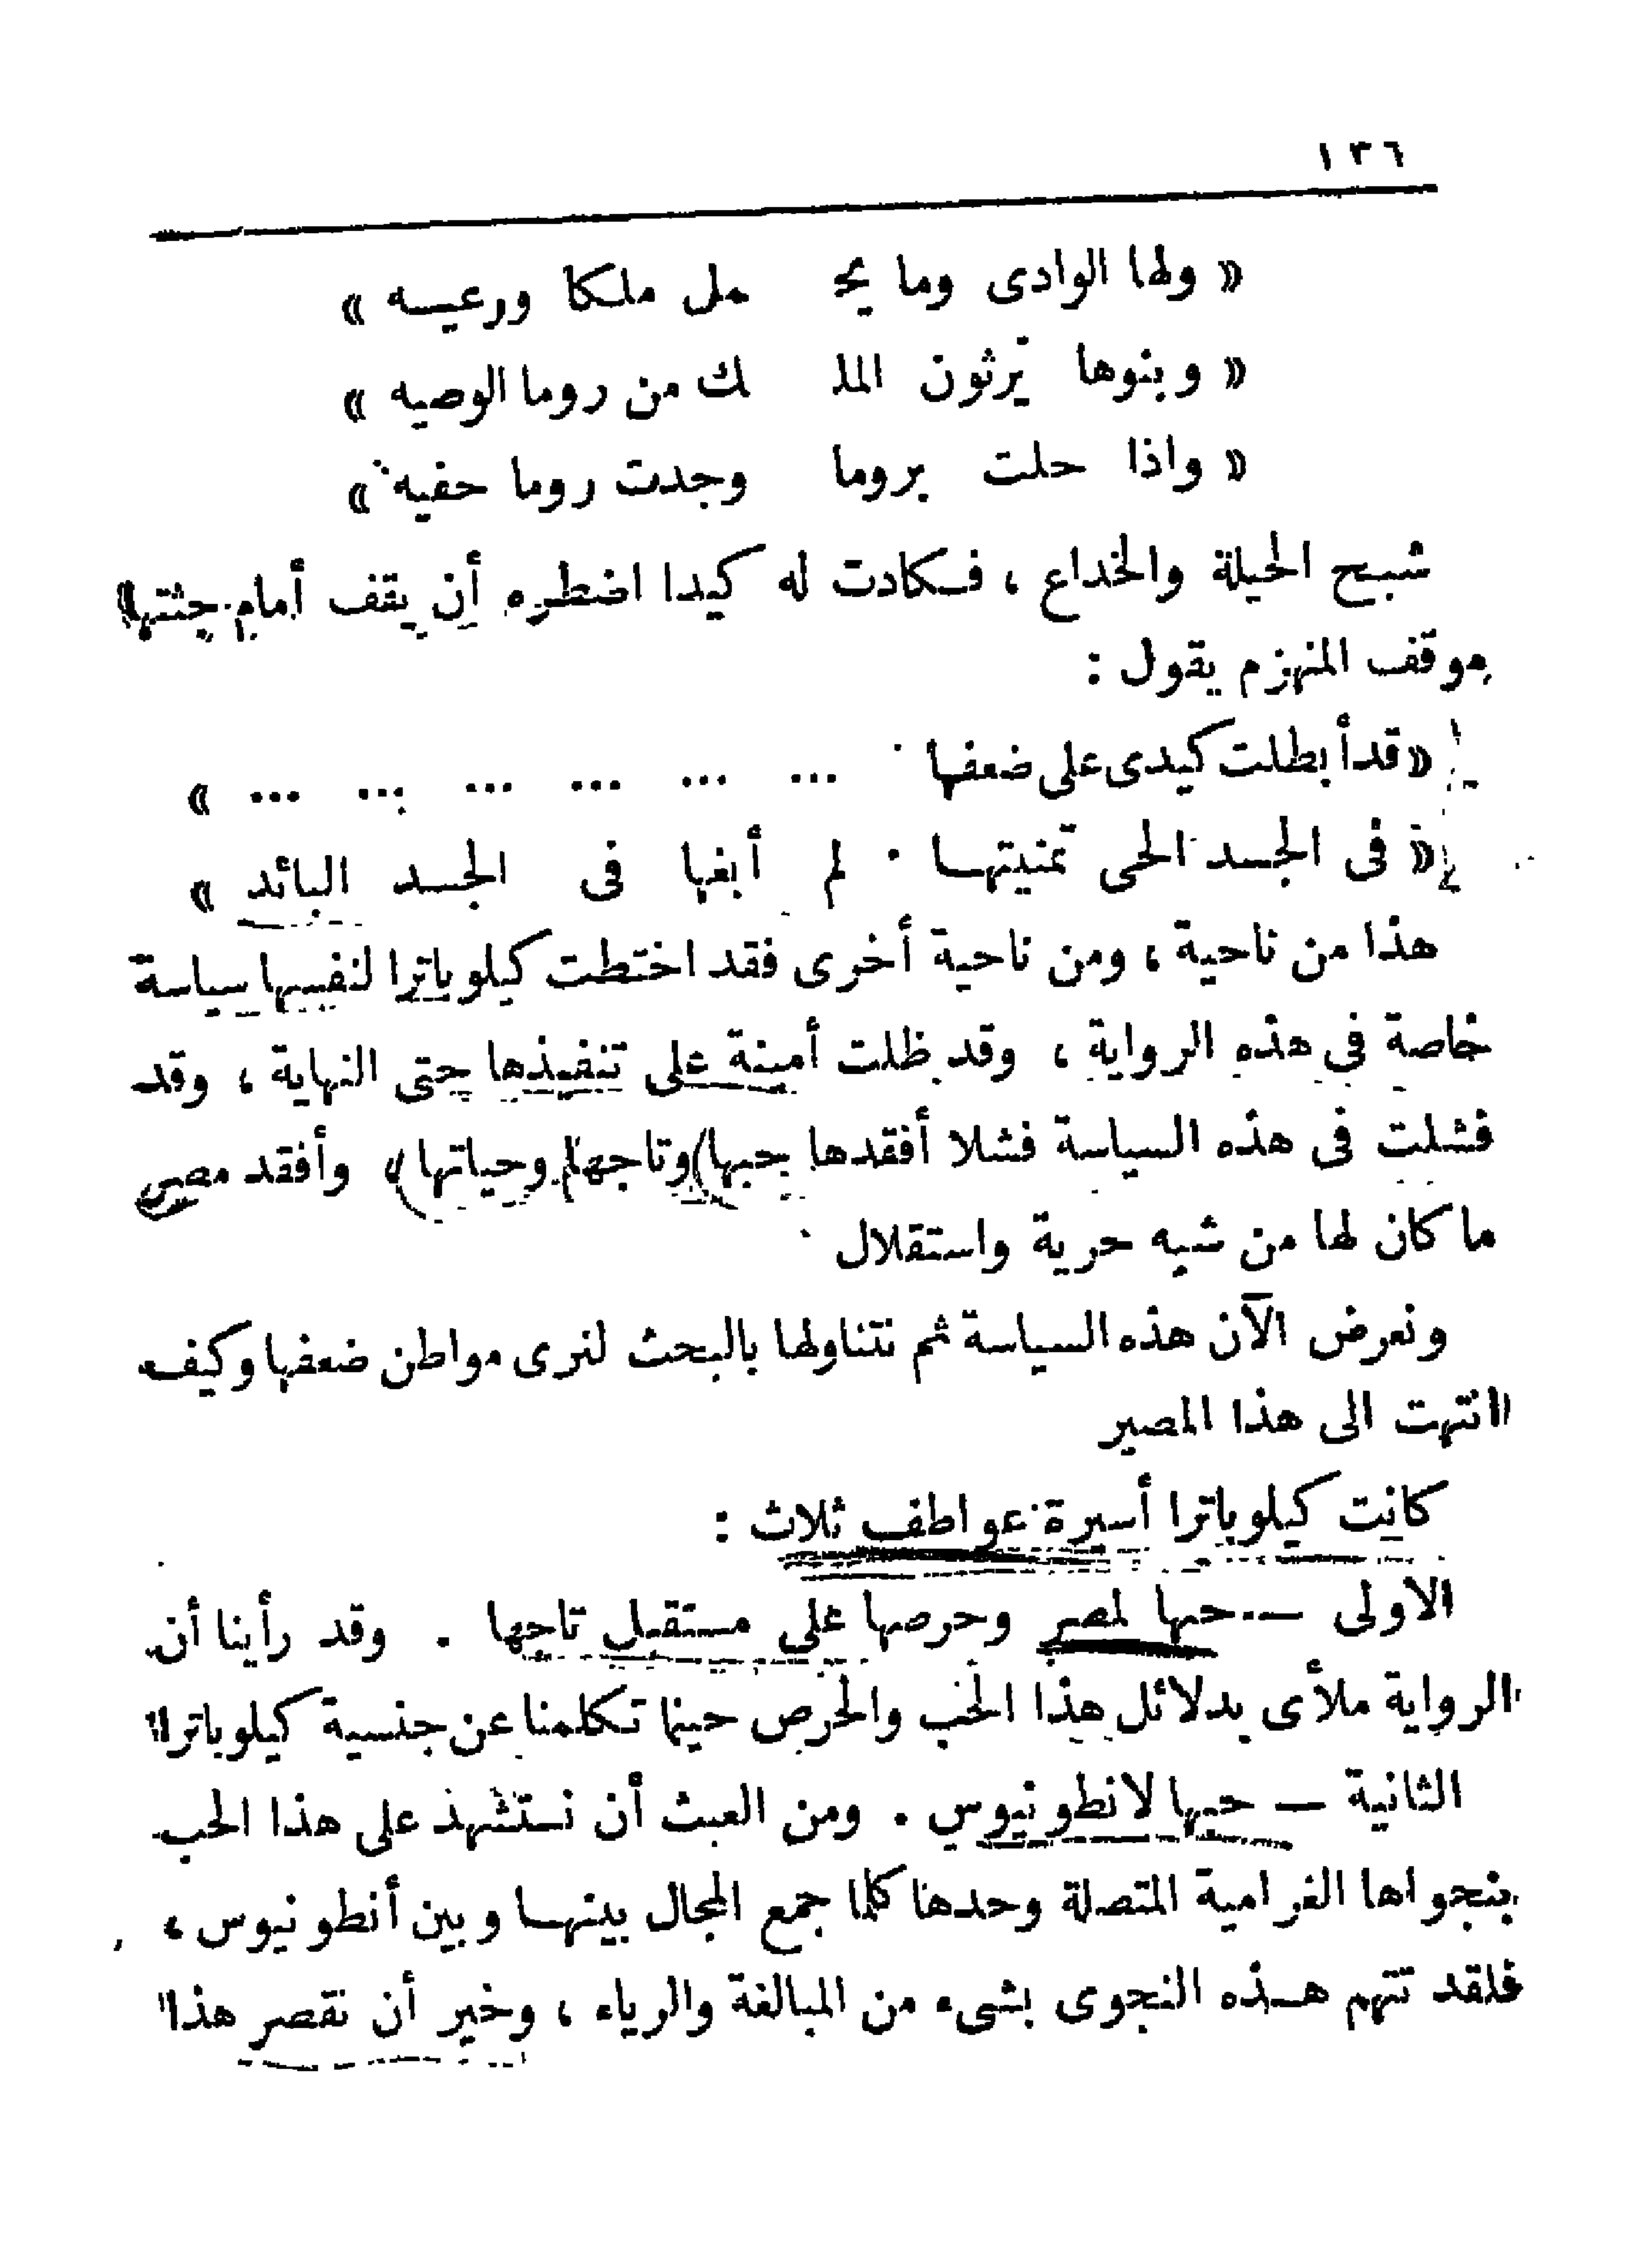 ١٣٦
« ولها الوادى وما يحـ ـمل ملكا ورعيه »
« وبنوها يرثون المـلـ ـك من روما الوصيه »
« واذا حلت بروما وجدت روما حفيه »
شبح الحيلة والخداع ، فكادت له كيدا اضطره أن يقف أمام جثتها
موقف المنهزم يقول :
« قد أبطلت كيدى على ضعفها ... ... ... ... ... ... »
« فى الجسد الحى تمنيتها . لم أبغها فى الجسد البائد »
هذا من ناحية ، ومن ناحية أخرى فقد اختطت كيلوباترا لنفسها سياسة
خاصة فى هذه الرواية ، وقد ظلت أمينة على تنفيذها حتى النهاية ، وقد
فشلت فى هذه السياسة فشلا أفقدها حبها وتاجها وحياتها ، وأفقد مصر
ما كان لها من شبه حرية واستقلال .
ونعرض الآن هذه السياسة ثم نتناولها بالبحث لنرى مواطن ضعفها وكيف
انتهت الى هذا المصير
كانت كيلوباترا أسيرة عواطف ثلاث :
الاولى — حبها لمصر وحرصها على مستقبل تاجها . وقد رأينا أن
الرواية ملأى بدلائل هذا الحب والحرص حينما تكلمنا عن جنسية كيلوباترا
الثانية — حبها لانطونيوس . ومن العبث أن نستشهد على هذا الحب
بنجواها الغرامية المتصلة وحدها كلما جمع المجال بينها وبين أنطونيوس ،
فلقد تتهم هذه النجوى بشىء من المبالغة والرياء ، وخير أن نقصر هذا